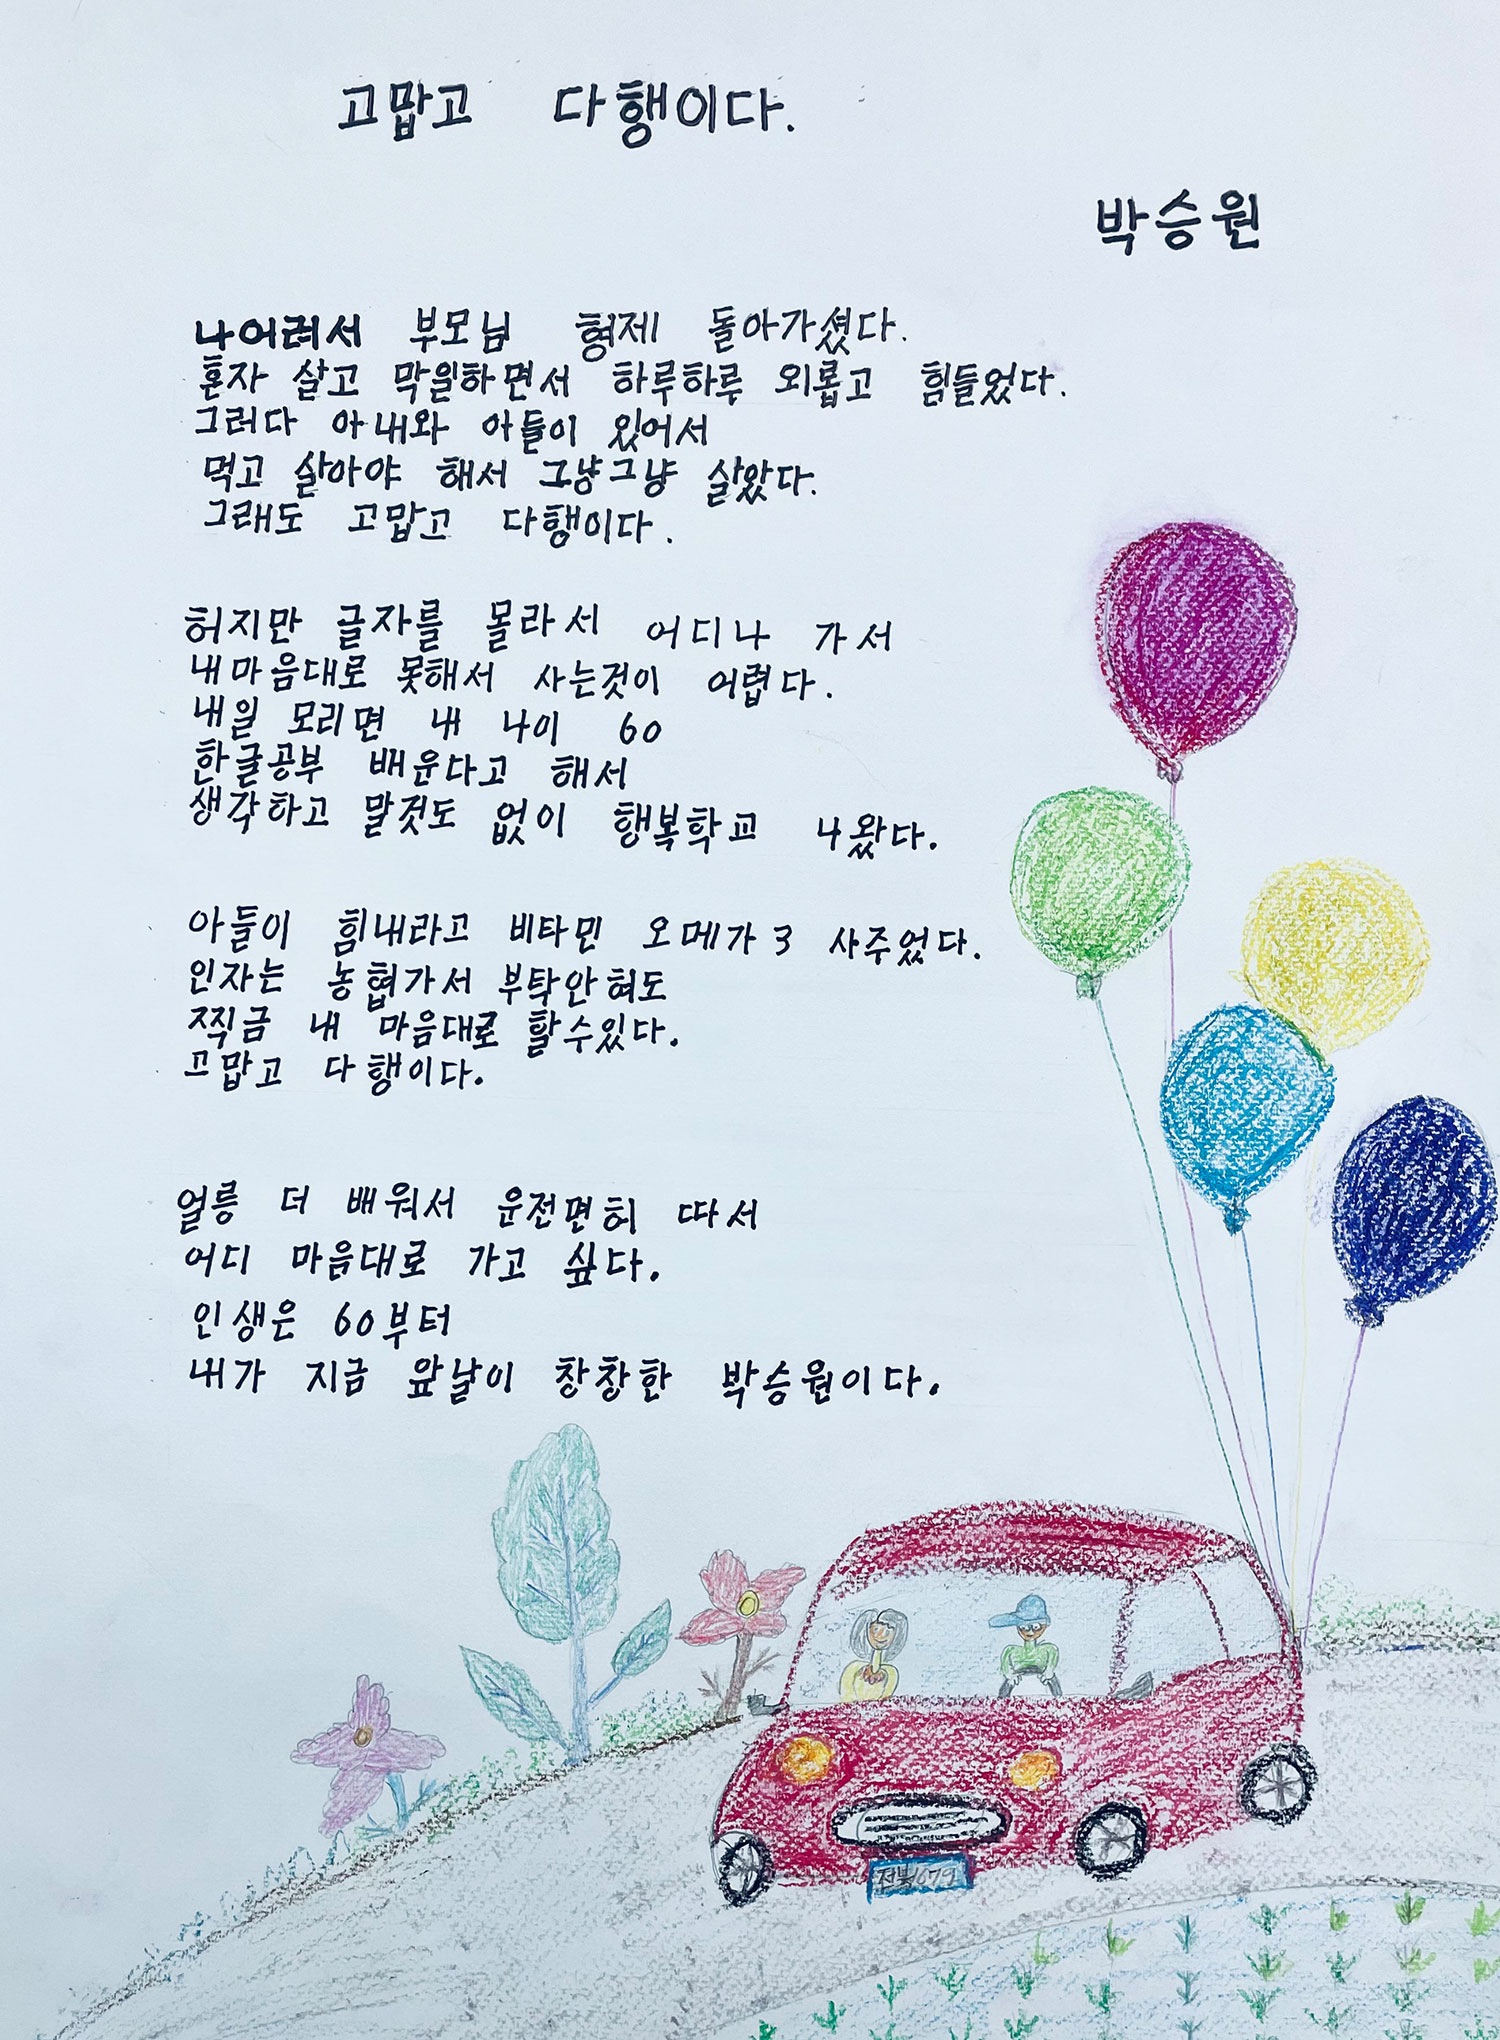 고맙고 다행이다.
박승원
나어려서 부모님 형제 돌아가셨다.
혼자 살고 막일하면서 하루하루 외롭고 힘들었다.
그러다 아내와 아들이 있어서
먹고 살아야 해서 그냥그냥 살았다.
그래도 고맙고 다행이다.
허지만 글자를 몰라서 어디나 가서
내마음대로 못해서 사는것이 어렵다.
내일 모리면 내 나이 60
한글공부 배운다고 해서
생각하고 말것도 없이 행복학교 나왔다.
아들이 힘내라고 비타민 오메가3 사주었다.
인자는 농협가서 부탁안혀도
찍금 내 마음대로 할수있다.
고맙고 다행이다.
얼릉 더 배워서 운전면허 따서
어디 마음대로 가고 싶다.
인생은 60부터
내가 지금 앞날이 창창한 박승원이다.
전북1679